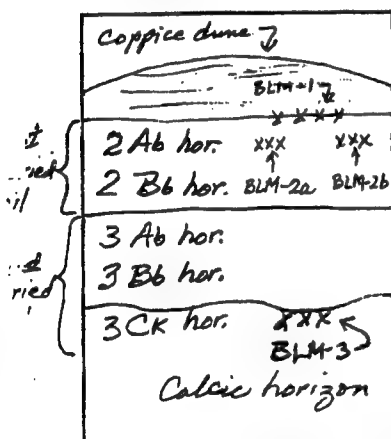 Coppice dune
BLM-1
xxxx
2 Ab hor. xxx xxx
2 Bb hor. BLM-2a BLM-2b
3 Ab hor.
3 Bb hor.
3 CK hor. xxx
BLM-3
Calcic horizon